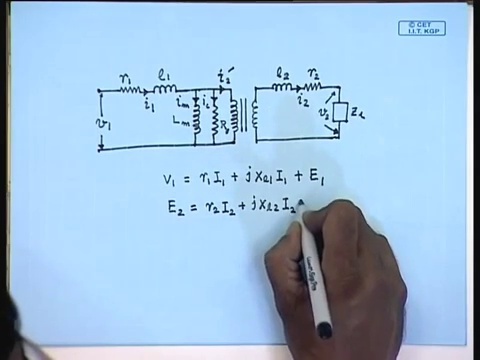 © CET
I.I.T. KGP
r₁ l₁ i₂′ l₂ r₂
i₁ iₘ i꜀ i₂
v₁ Lₘ R v₂ Z
V₁ = r₁I₁ + jXₗ₁I₁ + E₁
E₂ = r₂I₂ + jXₗ₂I₂